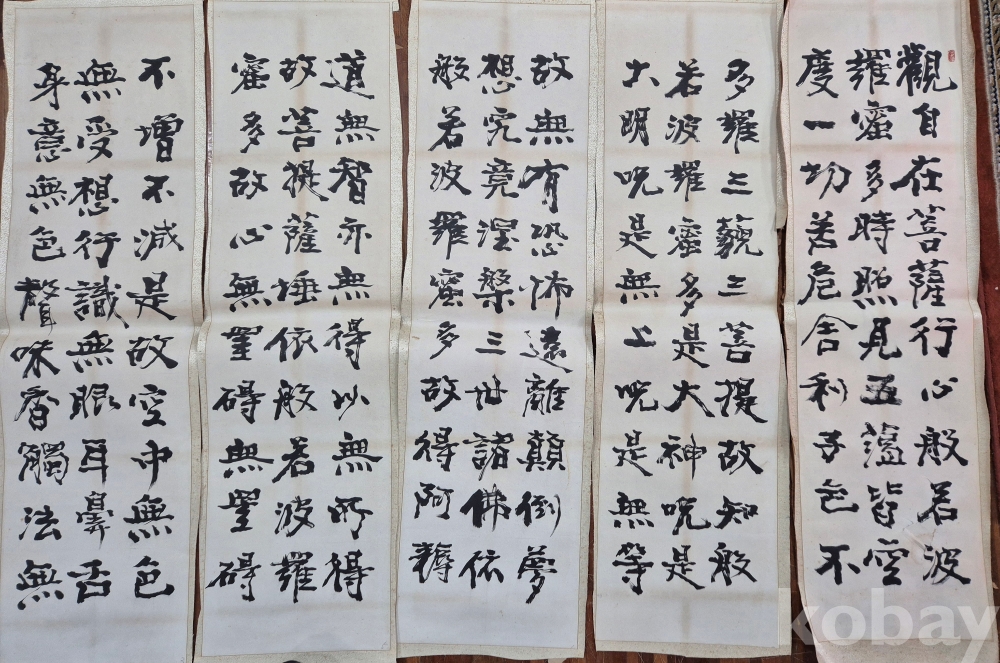 觀自在菩薩行心般若波
羅蜜多時照見五蘊皆空
度一切苦危舍利子色不
多羅三藐三菩提故知般
若波羅蜜多是大神呪是
大明呪是無上呪是無等
故無有恐怖遠離顛倒夢
想究竟涅槃三世諸佛依
般若波羅蜜多故得阿耨
道無智亦無得以無所得
故菩提薩埵依般若波羅
蜜多故心無罣碍無罣碍
不增不減是故空中無色
無受想行識無眼耳鼻舌
身意無色聲味香觸法無
kobay